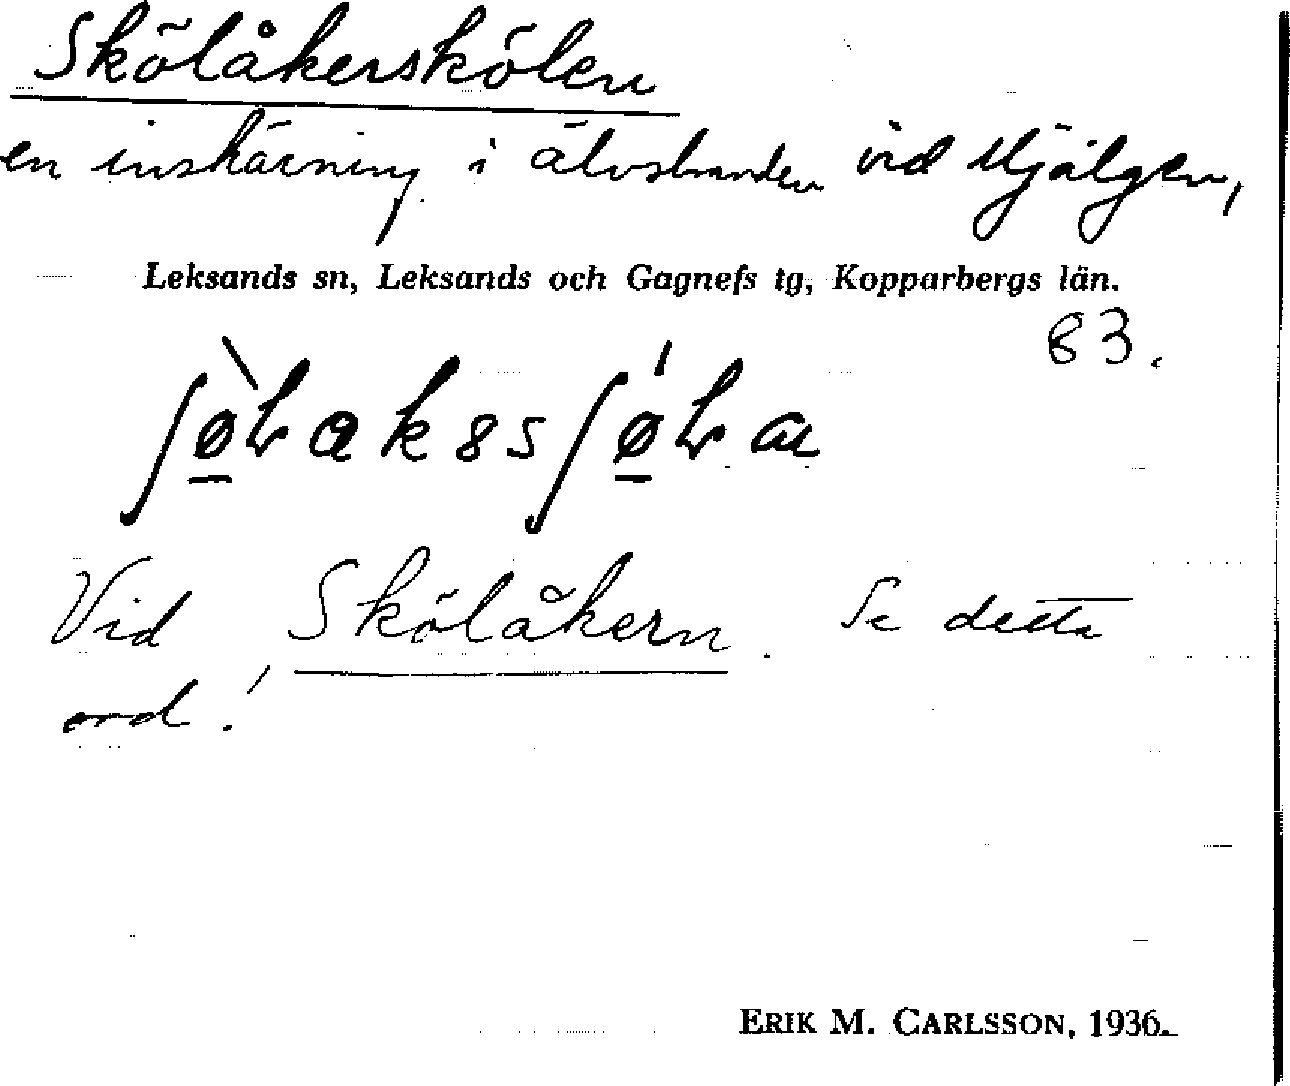 Skölåkerskölen
en inskärning i älvstranden vid Hjälgen,
Leksands sn, Leksands och Gagnefs tg, Kopparbergs län.
83.
Vid Skölåkern. Se detta
ord!
ERIK M. CARLSSON, 1936.